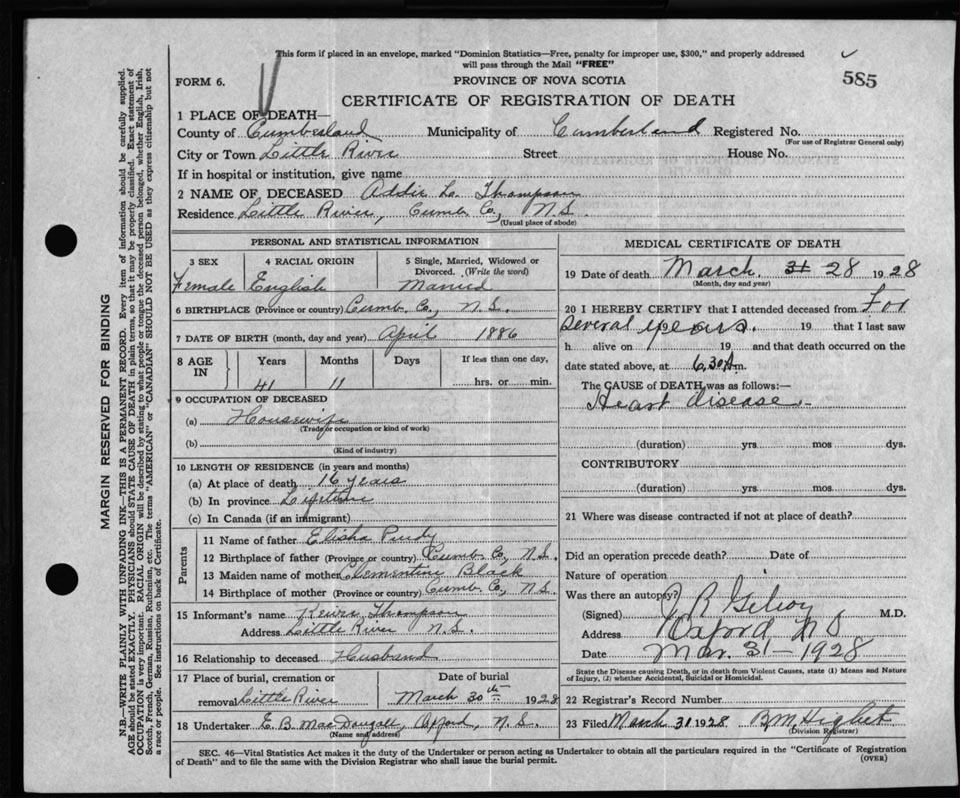 This form if placed in an envelope, marked "Dominion Statistics—Free, penalty for improper use, $300," and properly addressed
will pass through the Mail "FREE"
585
FORM 6.
PROVINCE OF NOVA SCOTIA
CERTIFICATE OF REGISTRATION OF DEATH
1 PLACE OF DEATH—
County of Cumberland Municipality of Cumberland Registered No.
(For use of Registrar General only)
City or Town Little River Street House No.
If in hospital or institution, give name
2 NAME OF DECEASED Addie L. Thompson
Residence Little River, Cumb. Co., N.S.
(Usual place of abode)
PERSONAL AND STATISTICAL INFORMATION
3 SEX 4 RACIAL ORIGIN 5 Single, Married, Widowed or
Divorced. (Write the word)
Female English Married
6 BIRTHPLACE (Province or country) Cumb. Co., N.S.
7 DATE OF BIRTH (month, day and year) April 1886
8 AGE IN Years Months Days If less than one day,
41 11 hrs. or min.
9 OCCUPATION OF DECEASED
(a) Housewife
(Trade or occupation or kind of work)
(b)
(Kind of industry)
10 LENGTH OF RESIDENCE (in years and months)
(a) At place of death 16 years
(b) In province Lifetime
(c) In Canada (if an immigrant)
Parents
11 Name of father Elisha Purdy
12 Birthplace of father (Province or country) Cumb. Co., N.S.
13 Maiden name of mother Clementine Black
14 Birthplace of mother (Province or country) Cumb. Co., N.S.
15 Informant's name Thompson
Address Little River N.S.
16 Relationship to deceased Husband
17 Place of burial, cremation or Date of burial
removal Little River March 30th 1928
18 Undertaker E. B. MacDougall Oxford, N.S.
(Name and address)
MEDICAL CERTIFICATE OF DEATH
19 Date of death March 31 28 1928
(Month, day and year)
20 I HEREBY CERTIFY that I attended deceased from For
several years. 19 that I last saw
h alive on 19 and that death occurred on the
date stated above, at 6.30 A m.
The CAUSE of DEATH was as follows:—
Heart disease
(duration) yrs mos dys.
CONTRIBUTORY
(duration) yrs. mos dys.
21 Where was disease contracted if not at place of death?
Did an operation precede death? Date of
Nature of operation
Was there an autopsy?
(Signed) J R Gilroy M.D.
Address Oxford N S
Date Mar. 31 - 1928
State the Disease causing Death, or in death from Violent Causes, state (1) Means and Nature
of Injury, (2) whether Accidental, Suicidal or Homicidal.
22 Registrar's Record Number
23 Filed March 31 1928 B.M. Higbet
(Division Registrar)
SEC. 46—Vital Statistics Act makes it the duty of the Undertaker or person acting as Undertaker to obtain all the particulars required in the "Certificate of Registration
of Death" and to file the same with the Division Registrar who shall issue the burial permit.
(OVER)
MARGIN RESERVED FOR BINDING
N.B.—WRITE PLAINLY WITH UNFADING INK—THIS IS A PERMANENT RECORD. Every item of information should be carefully supplied.
AGE should be stated EXACTLY. PHYSICIANS should STATE CAUSE OF DEATH in plain terms, so that it may be properly classified. Exact statement of
OCCUPATION is very important. RACIAL ORIGIN will be described by stating to what people or tongue the deceased person belonged, whether English, Irish,
Scotch, French, German, Russian, Ruthenian, etc. The terms "AMERICAN" or "CANADIAN" SHOULD NOT BE USED as they express citizenship but not
a race or people. See instructions on back of Certificate.